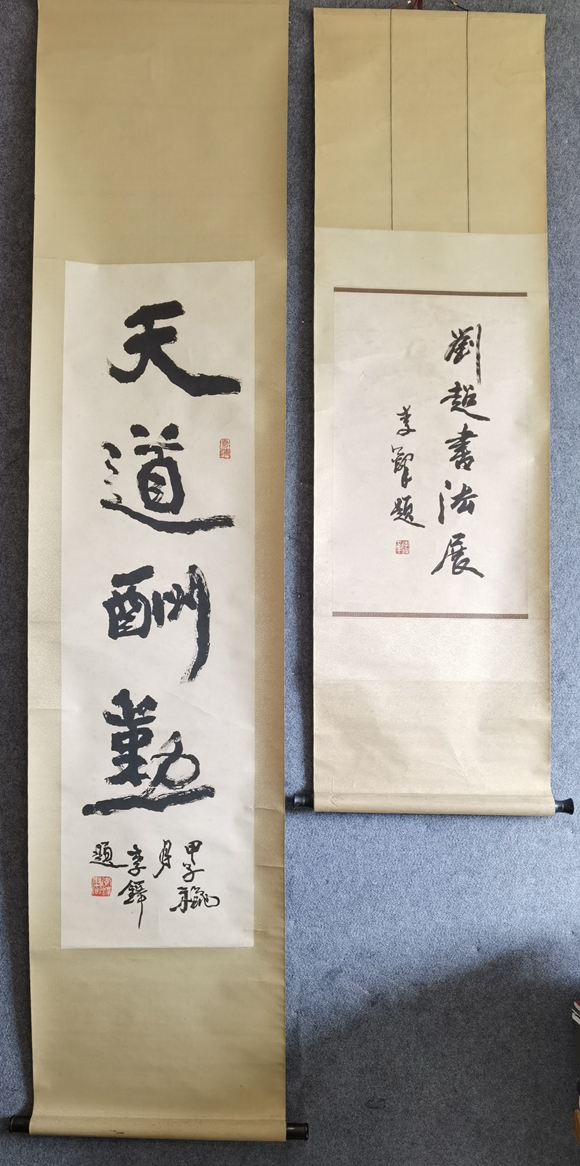 天道酬勤
甲子龝
月
李鐸
題
劉超書法展
李鐸題